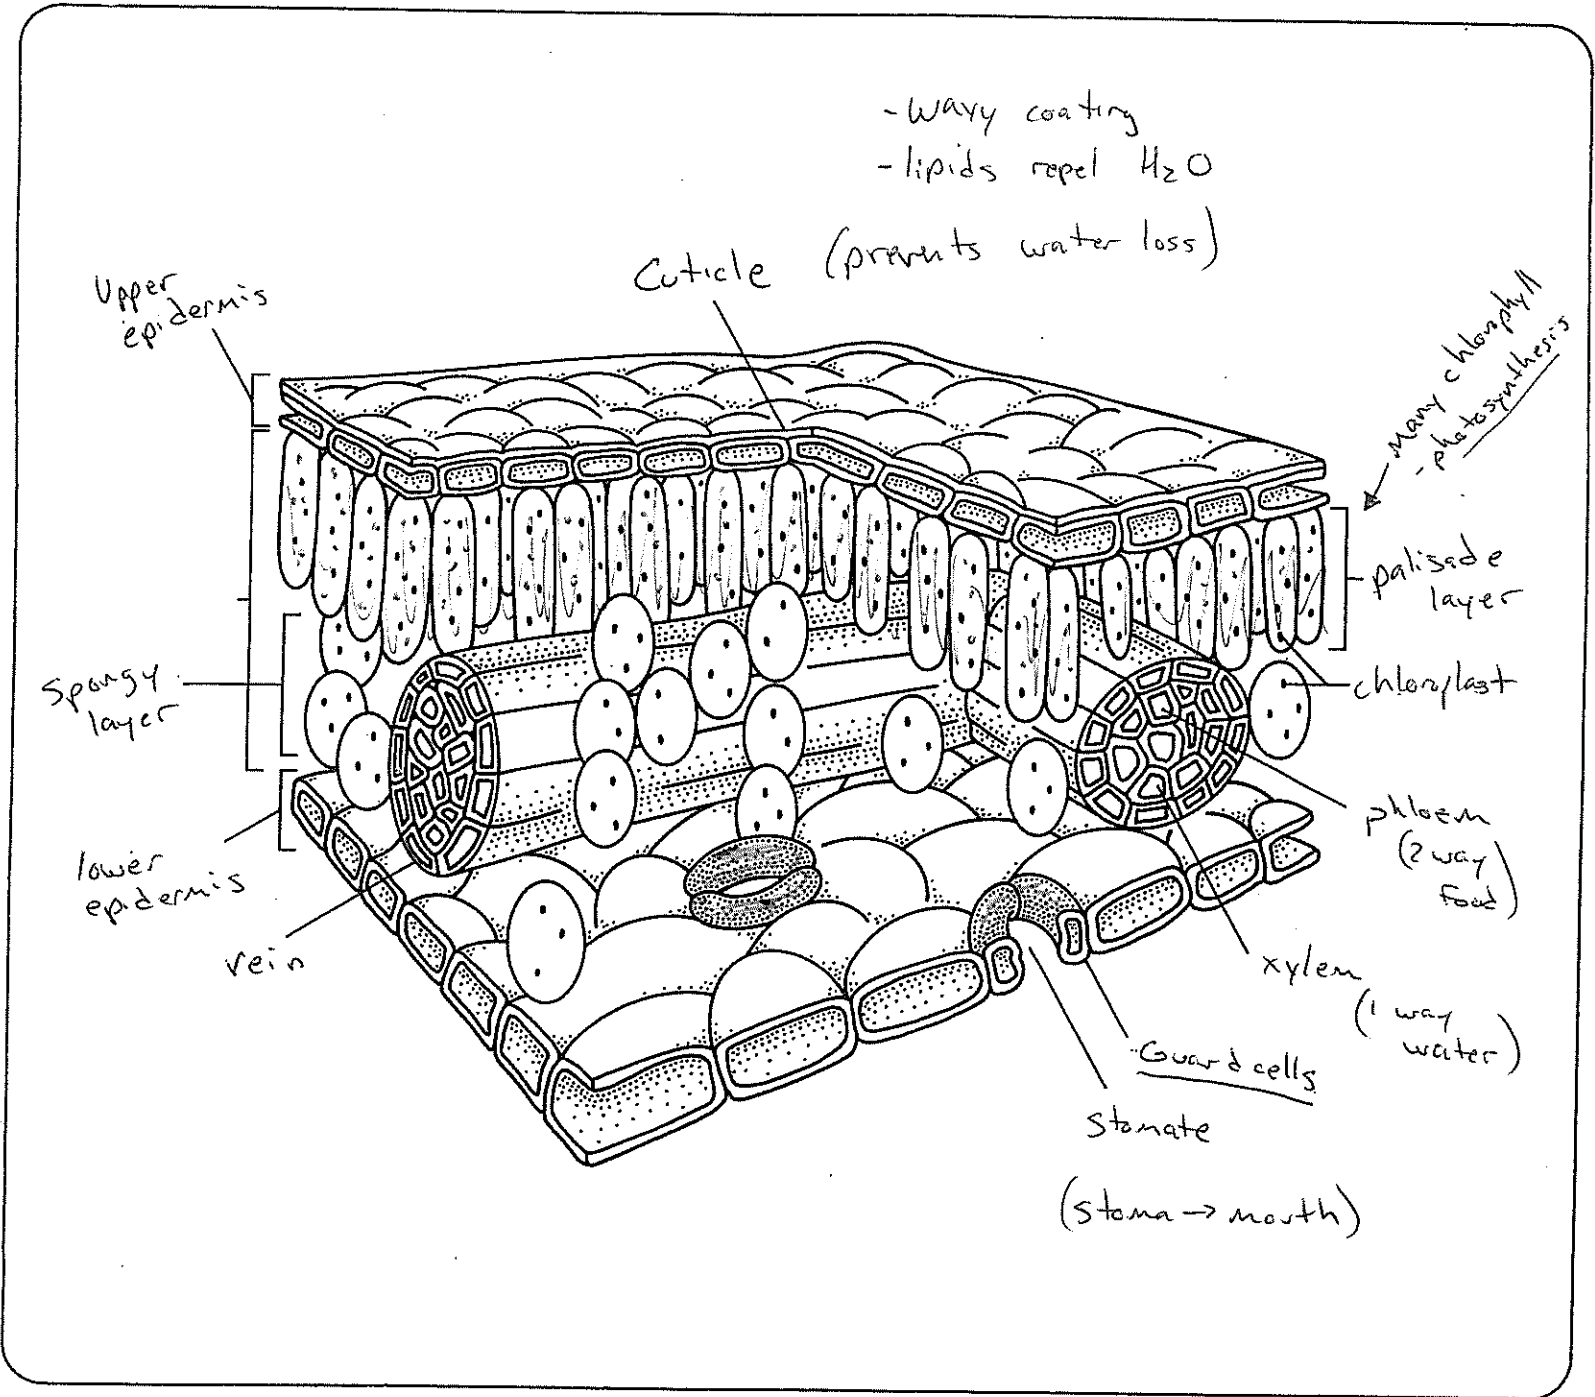 - wavy coating
- lipids repel H₂O
Cuticle (prevents water loss)
Upper
epidermis
many chlorophyll
- photosynthesis
palisade
layer
chloroplast
spongy
layer
phloem
(2 way
food)
lower
epidermis
vein
xylem
(1 way
water)
Guard cells
stomate
(stoma → mouth)